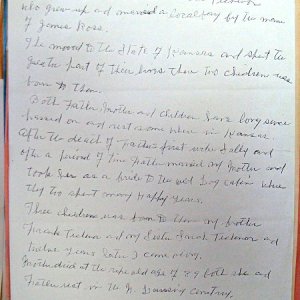 who grew up and married a local boy by the name
of James Ross.
The moved to the State of Kansas and spent the
greater part of their lives there two children was
born to them.
Both Father Mother and children have long since
passed on and rest some where in Kansas.
After the death of Fathers first wife Sally and
after a period of time Father married my Mother and
took her as a bride to the old Log cabin where
they too spent many Happy years.
Three children was born to them my brother
Frank and my Sister Sarah and
twelve years later I came along.
Mother died at the ripe old age of 89 both she and
Father rest in the Cemetery.